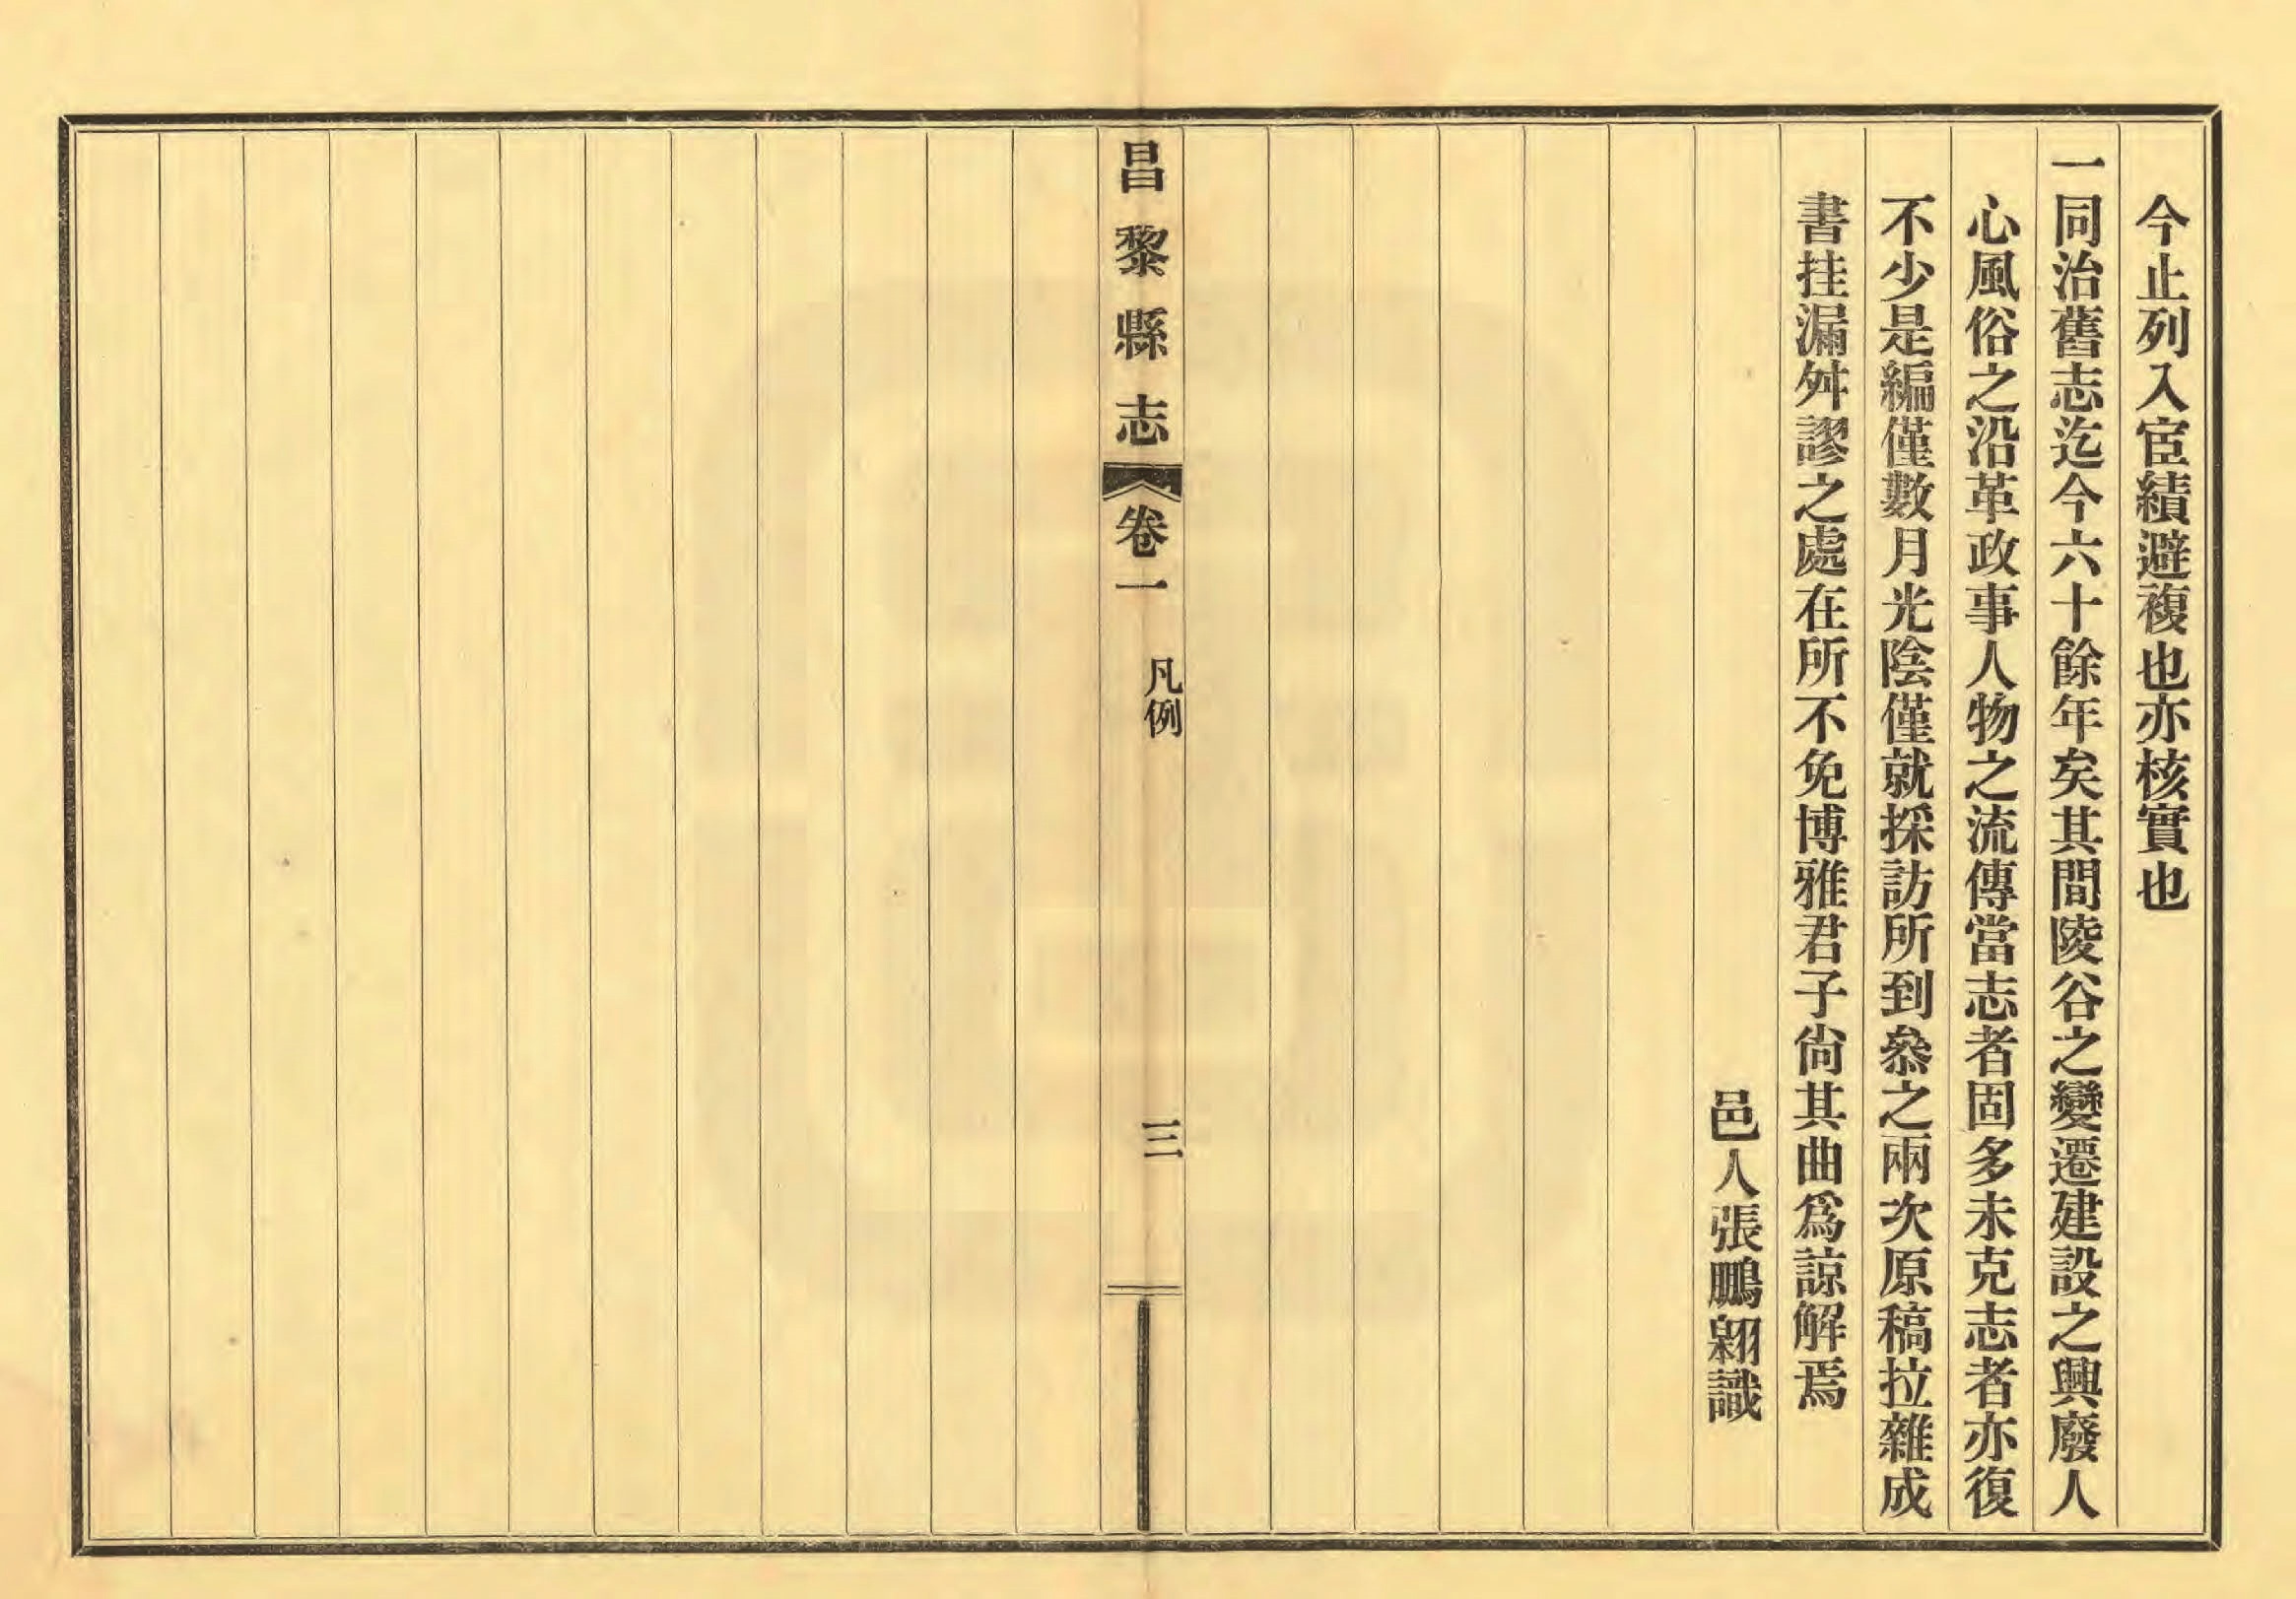 今止列入宦績避複也亦核實也
一同治舊志迄今六十餘年矣其間陵谷之變遷建設之興廢人
心風俗之沿革政事人物之流傳當志者固多未克志者亦復
不少是編僅數月光陰僅就採訪所到叅之兩次原稿拉雜成
書挂漏舛謬之處在所不免博雅君子尙其曲爲諒解焉
邑人張鵬翺識
昌黎縣志
卷一
凡例
三